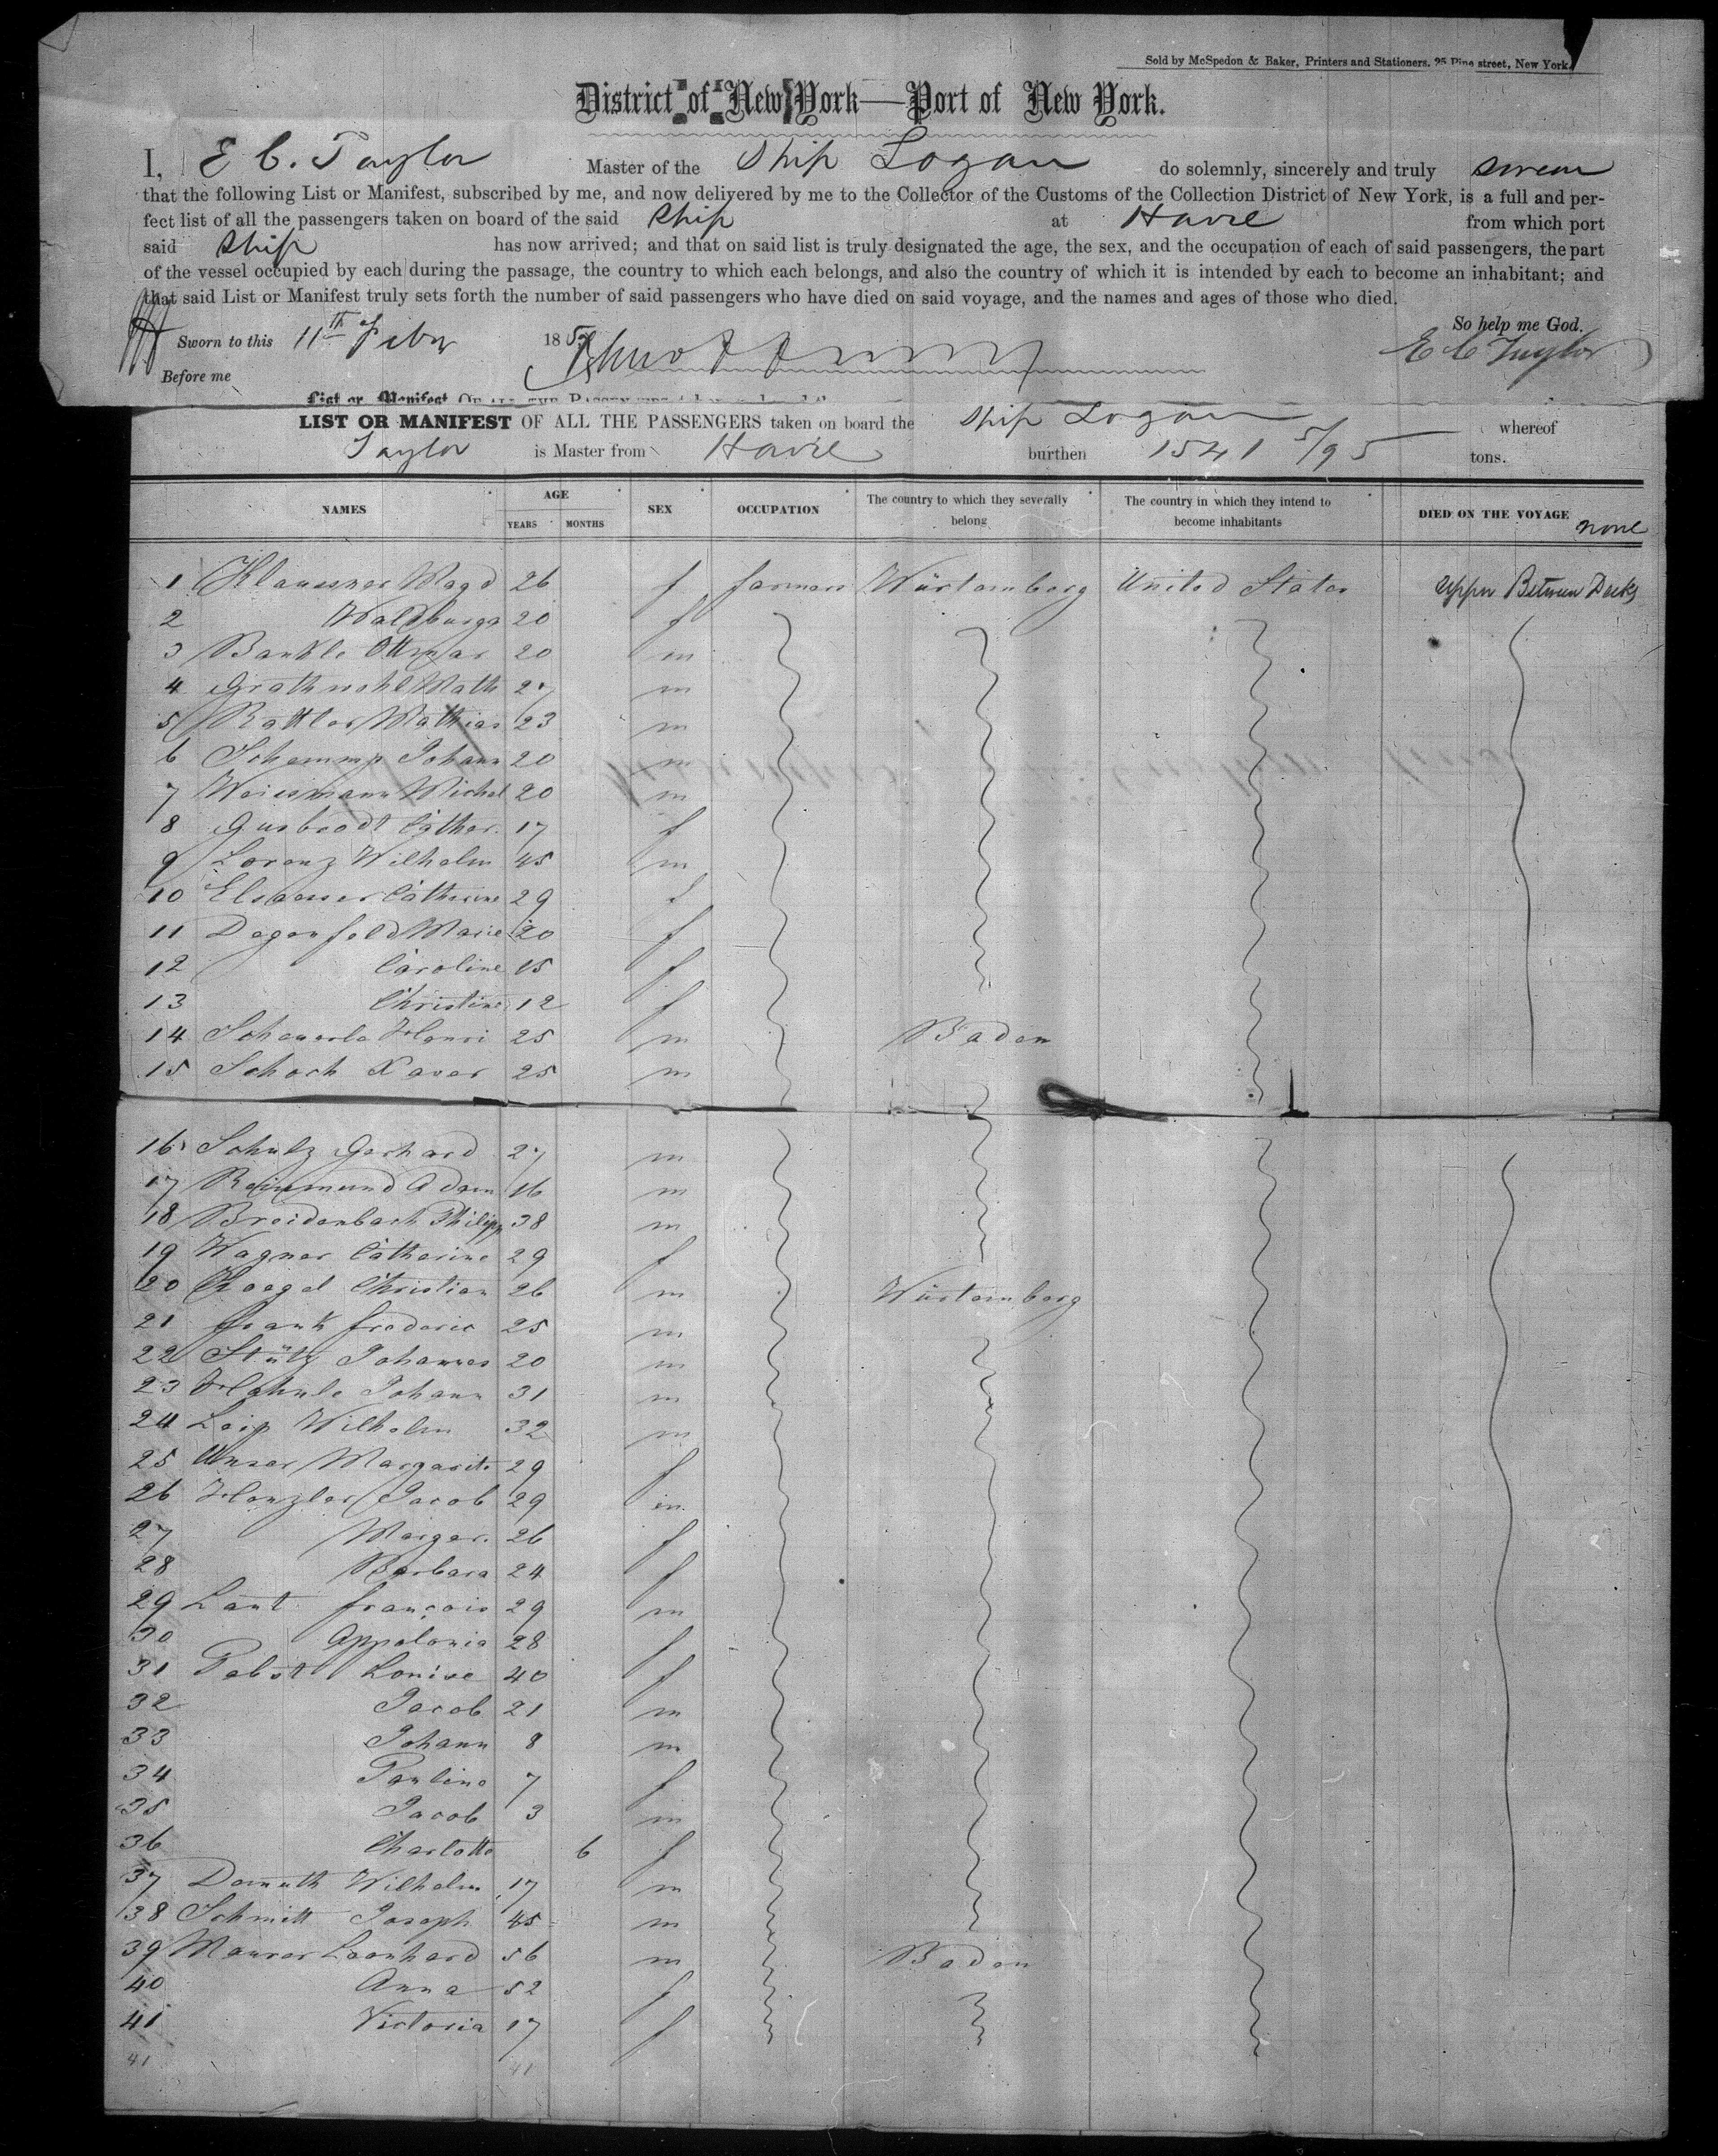 Sold by McSpedon & Baker, Printers and Stationers, 25 Pine street, New York.
District of New York—Port of New York.
I, E C. Taylor Master of the Ship Logan do solemnly, sincerely and truly swear
that the following List or Manifest, subscribed by me, and now delivered by me to the Collector of the Customs of the Collection District of New York, is a full and per-
fect list of all the passengers taken on board of the said Ship at Havre from which port
said Ship has now arrived; and that on said list is truly designated the age, the sex, and the occupation of each of said passengers, the part
of the vessel occupied by each during the passage, the country to which each belongs, and also the country of which it is intended by each to become an inhabitant; and
that said List or Manifest truly sets forth the number of said passengers who have died on said voyage, and the names and ages of those who died.
So help me God.
Sworn to this 11th of 185 E C Taylor
Before me
List or Manifest OF ALL THE PASSENGERS
LIST OR MANIFEST OF ALL THE PASSENGERS taken on board the Ship Logan whereof
Taylor is Master from Havre burthen 1541 5/95 tons.
NAMES AGE YEARS MONTHS SEX OCCUPATION The country to which they severally belong The country in which they intend to become inhabitants DIED ON THE VOYAGE none
1 Klaussner Magd 26 f farmers Würtemberg United States Upper Between Decks
2 Waldburga 20 f
3 Bankle Ottmar 20 m
4 Grathwohl Math 27 m
5 Rattler Mathias 23 m
6 Schempp Johann 20 m
7 Weissmann Michel 20 m
8 Cather. 17 f
9 Lorenz Wilhelm 45 m
10 Elsaesser Catherine 29 f
11 Degenfeld Marie 20 f
12 Caroline 15 f
13 Christine 12 f
14 Scheuerle Henri 25 m Baden
15 Schoch Xaver 25 m
16 Schulz Gerhard 27 m
17 Reinmund Adam 16 m
18 Breidenbach Philipp 38 m
19 Wagner Catherine 29 f
20 Christian 26 m Würtemberg
21 Frank frederic 25 m
22 Stütz Johannes 20 m
23 Hahnle Johann 31 m
24 Leip Wilhelm 32 m
25 Unser Margarite 29 f
26 Henzler Jacob 29 m
27 Marger. 26 f
28 Barbara 24 f
29 Laut françois 29 m
30 Appolonia 28 f
31 Pabst Louise 40 f
32 Jacob 21 m
33 Johann 8 m
34 Pauline 7 f
35 Jacob 3 m
36 Charlotte 6 f
37 Demuth Wilhelm 17 m
38 Schmitt Joseph 45 m
39 Maurer Leonhard 56 m Baden
40 Anna 52 f
41 Victoria 17 f
41 41